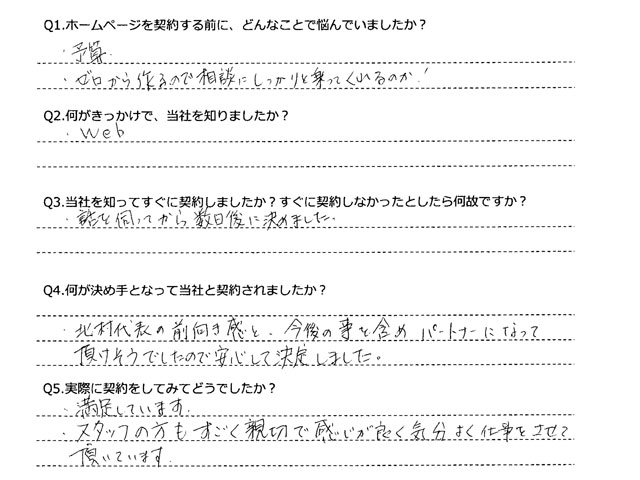 Q1.ホームページを契約する前に、どんなことで悩んでいましたか？
・予算.
・ゼロから作るので相談にしっかりと乗ってくれるのか！
Q2.何がきっかけで、当社を知りましたか？
・Web
Q3.当社を知ってすぐに契約しましたか？すぐに契約しなかったとしたら何故ですか？
・話を伺ってから数日後に決めました.
Q4.何が決め手となって当社と契約されましたか？
・北村代表の前向き感と、今後の事を含めパートナーになって
頂けそうでしたので安心して決定しました。
Q5.実際に契約をしてみてどうでしたか？
・満足しています.
・スタッフの方もすごく親切で感じが良く気分よく仕事をさせて
頂いています.